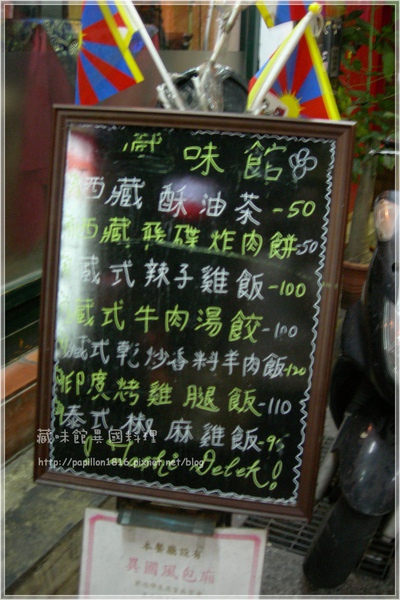 藏味館
西藏酥油茶-50
西藏飛碟炸肉餅-50
藏式辣子雞飯-100
藏式牛肉湯餃-100
藏式乾炒香料羊肉飯-120
印度烤雞腿飯-110
泰式椒麻雞飯-95
Delek!
藏味館異國料理
http://papillon1816.pixnet.net/blog
本餐廳設有
異國風包廂